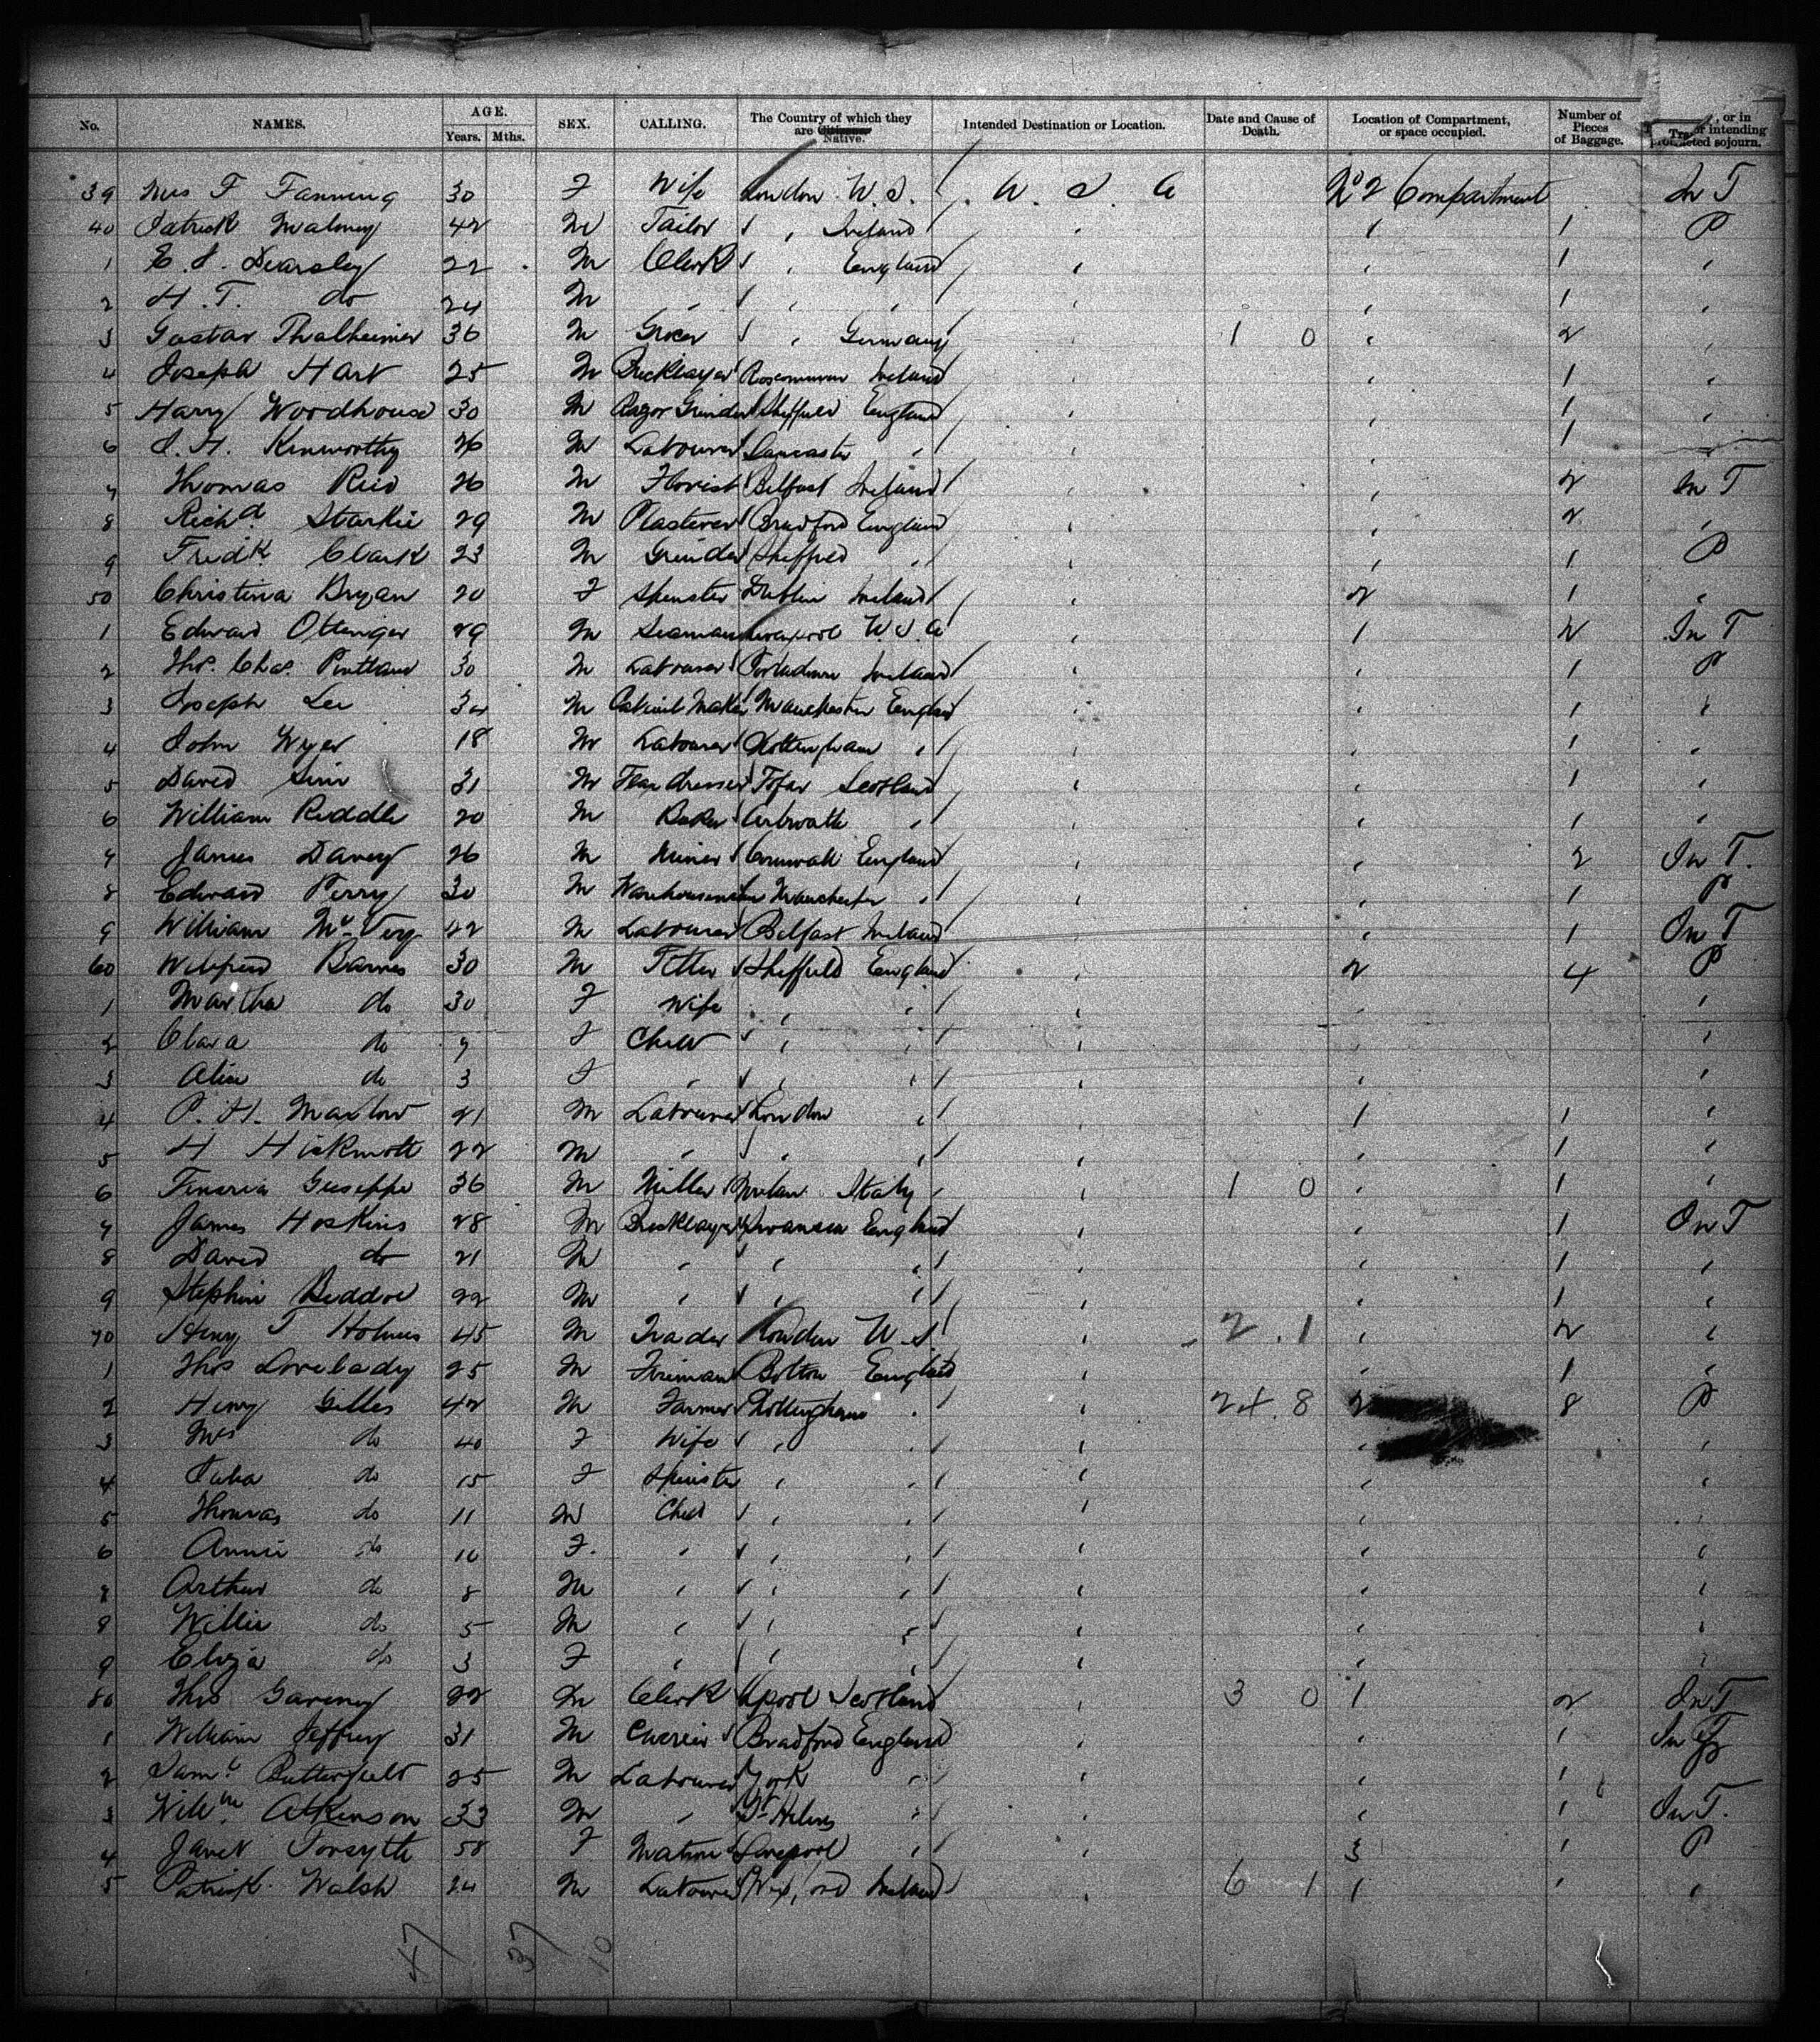 No. NAMES. AGE. Years. Mths. SEX. CALLING. The Country of which they are Native. Intended Destination or Location. Date and Cause of Death. Location of Compartment, or space occupied. Number of Pieces of Baggage. , or in Tra or intending protracted sojourn.
39 Mrs F Fanning 30 F Wife London U.S. U. S. A No 2 Compartment In T
40 Patrick Maloney 42 M Tailor " Ireland " " 1 P
1 E. J. Dearsley 22 M Clerk " England " " 1 "
2 H. T. do 24 M " " " " " 1 "
3 Gustav Thalheimer 36 M Grocer " Germany " 1 0 " 2 "
4 Joseph Hart 25 M Bricklayer Roscommon Ireland " " 1 "
5 Harry Woodhouse 30 M Razor Grinder Sheffield England " " 1 "
6 J. H. Kenworthy 26 M Labourer Lancaster " " " 1
7 Thomas Reid 26 M Florist Belfast Ireland " " 2 In T
8 Richd Starkie 29 M Plasterer Bradford England " " 2 "
9 Fredk Clark 23 M Grinder Sheffield " " " 1 P
50 Christina Bryan 20 F Spinster Dublin Ireland " 2 1 "
1 Edward Ottinger 29 M Seaman Liverpool U.S.A " 1 2 In T
2 Thos. Chas. Pentland 30 M Labourer Ireland " " 1 P
3 Joseph Lee 34 M Cabinet Maker Manchester England " " 1 "
4 John Wyer 18 M Labourer Nottingham " " " 1 "
5 David Sim 31 M Flax dresser Forfar Scotland " " 1 "
6 William Riddle 20 M Baker Arbroath " " " 1 "
7 James Davey 26 M Miner Cornwall England " " 2 In T.
8 Edward Perry 30 M Warehouseman Manchester " " " 1 P
9 William 22 M Labourer Belfast Ireland " " 1 In T
60 Wilfred Barnes 30 M Fitter Sheffield England " 2 4 P
1 Martha do 30 F Wife " " " " "
2 Clara do 7 F Child " " " " "
3 Alice do 3 F " " " " " "
4 P. H. Maxlow 21 M Labourer London " " 1 1 "
5 H Hickmott 22 M " " " " " 1 "
6 Giuseppe 36 M Miller Milan Italy " 1 0 " 1 "
7 James Hoskins 28 M Bricklayer Swansea England " " 1 In T
8 David do 21 M " " " " " 1 "
9 Stephen Beddoe 22 M " " " " " 1 "
70 Henry T Holmes 45 M Trader London U.S " 2 . 1 " 2 "
1 Thos Lovelady 25 M Fireman Bolton England " " 1 "
2 Henry Gilles 42 M Farmer Nottingham " " 24.8 2 8 P
3 Mrs do 40 F Wife " " " " "
4 Julia do 15 F Spinster " " " " "
5 Thomas do 11 M Child " " " " "
6 Annie do 10 F. " " " " " "
7 Arthur do 8 M " " " " " "
8 Willie do 5 M " " " " " "
9 Eliza do 3 F " " " " " "
80 Thos 22 M Clerk Scotland " 3 0 1 2 In T
1 William Jeffrey 31 M Bradford England " " 1 In
2 Saml Butterfield 25 M Labourer York " " " 1
3 Willm Atkinson 33 M " St Helens " " " 1 In T.
4 Janet Forsyth 58 F Matron Liverpool " " 3 1 P
5 Patrick Walsh 24 M Labourer Wexford Ireland " 6 1 1 1 "
47 37 10